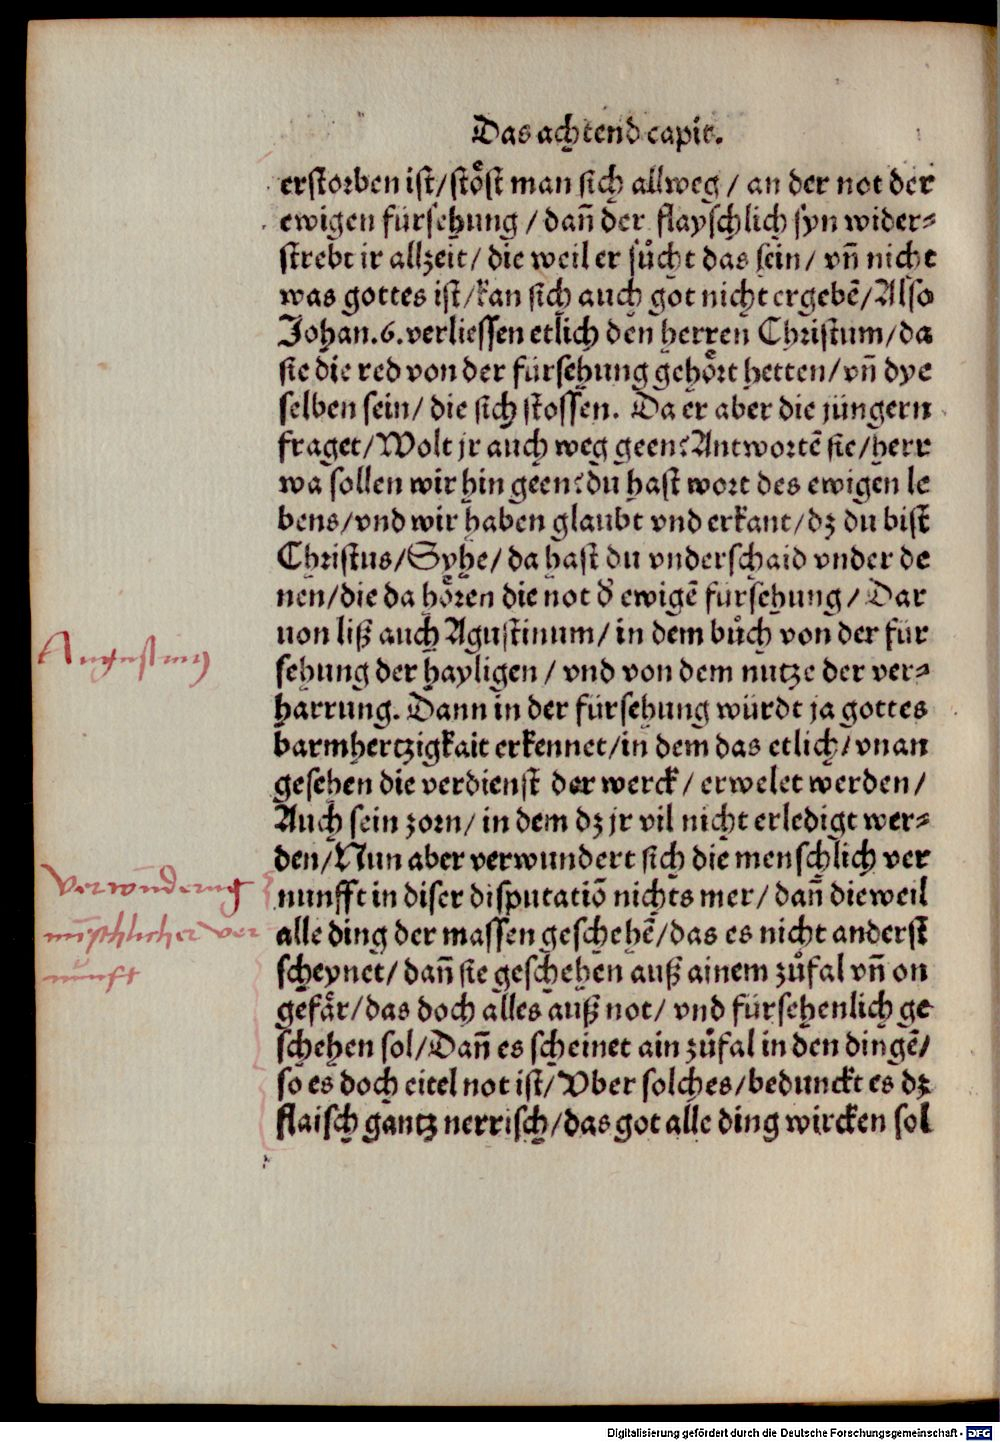 Das achtend capit.
erstorben ist/stöst man sich allweg/ an der not der
ewigen fürsehung/dañ der flayschlich syn wider-
strebt ir allzeit/ die weil er sůcht das sein/ vñ nicht
was gottes ist/kan sich auch got nicht ergebẽ/Also
Johan.6.verliessen etlich den herren Christum/da
sie die red von der fürsehung gehört hetten/vñ dye
selben sein/ die sich stossen. Da er aber die jüngern
fraget/Wolt jr auch weg geen?Antwortẽ sie/herr
wa sollen wir hin geen?du hast wort des ewigen le
bens/vnd wir haben glaubt vnd erkant/dz du bist
Christus/Syhe/da hast du vnderschaid vnder de
nen/die da hören die not d̕ ewigẽ fürsehung/Dar
uon liß auch Agustinum/in dem bůch von der für
Augustinus
sehung der hayligen/ vnd von dem nutze der ver-
harrung. Dann in der fürsehung würdt ja gottes
barmhertzigkait erkennet/in dem das etlich/vnan
gesehen die verdienst der werck/ erwelet werden/
Auch sein zorn/ in dem dz jr vil nicht erledigt wer-
den/Nun aber verwundert sich die menschlich ver
Verwunderung
nunfft in diser disputatiõ nichts mer/ dañ dieweil
alle ding der massen geschehẽ/das es nicht anderst
menschlicher ver
scheynet/dañ sie geschehen auß ainem zůfal vñ on
nunft
gefär/das doch alles auß not/ vnd fürsehenlich ge
schehen sol/Dañ es scheinet ain zůfal in den dingẽ/
so es doch eitel not ist/Vber solches/bedunckt es dz
flaisch gantz nerrisch/das got alle ding wircken sol
Digitalisierung gefördert durch die Deutsche Forschungsgemeinschaft - DFG